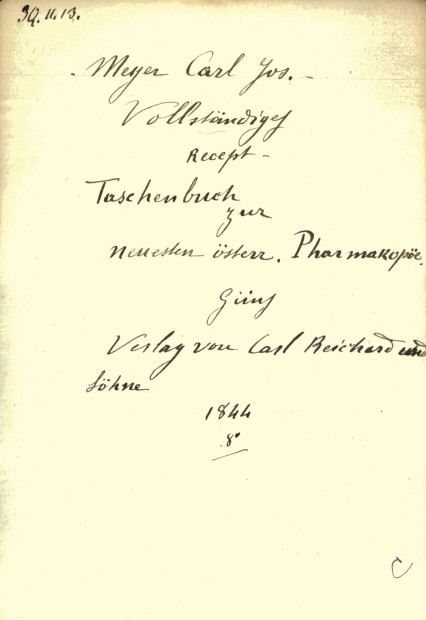 39.11.13.
Meyer Carl Jos. –
Vollständiges
Recept –
Taschenbuch
zur
neuesten österr. Pharmakopöe.
Güns
Verlag von Carl Reichard und
Söhne
1844
8°
C